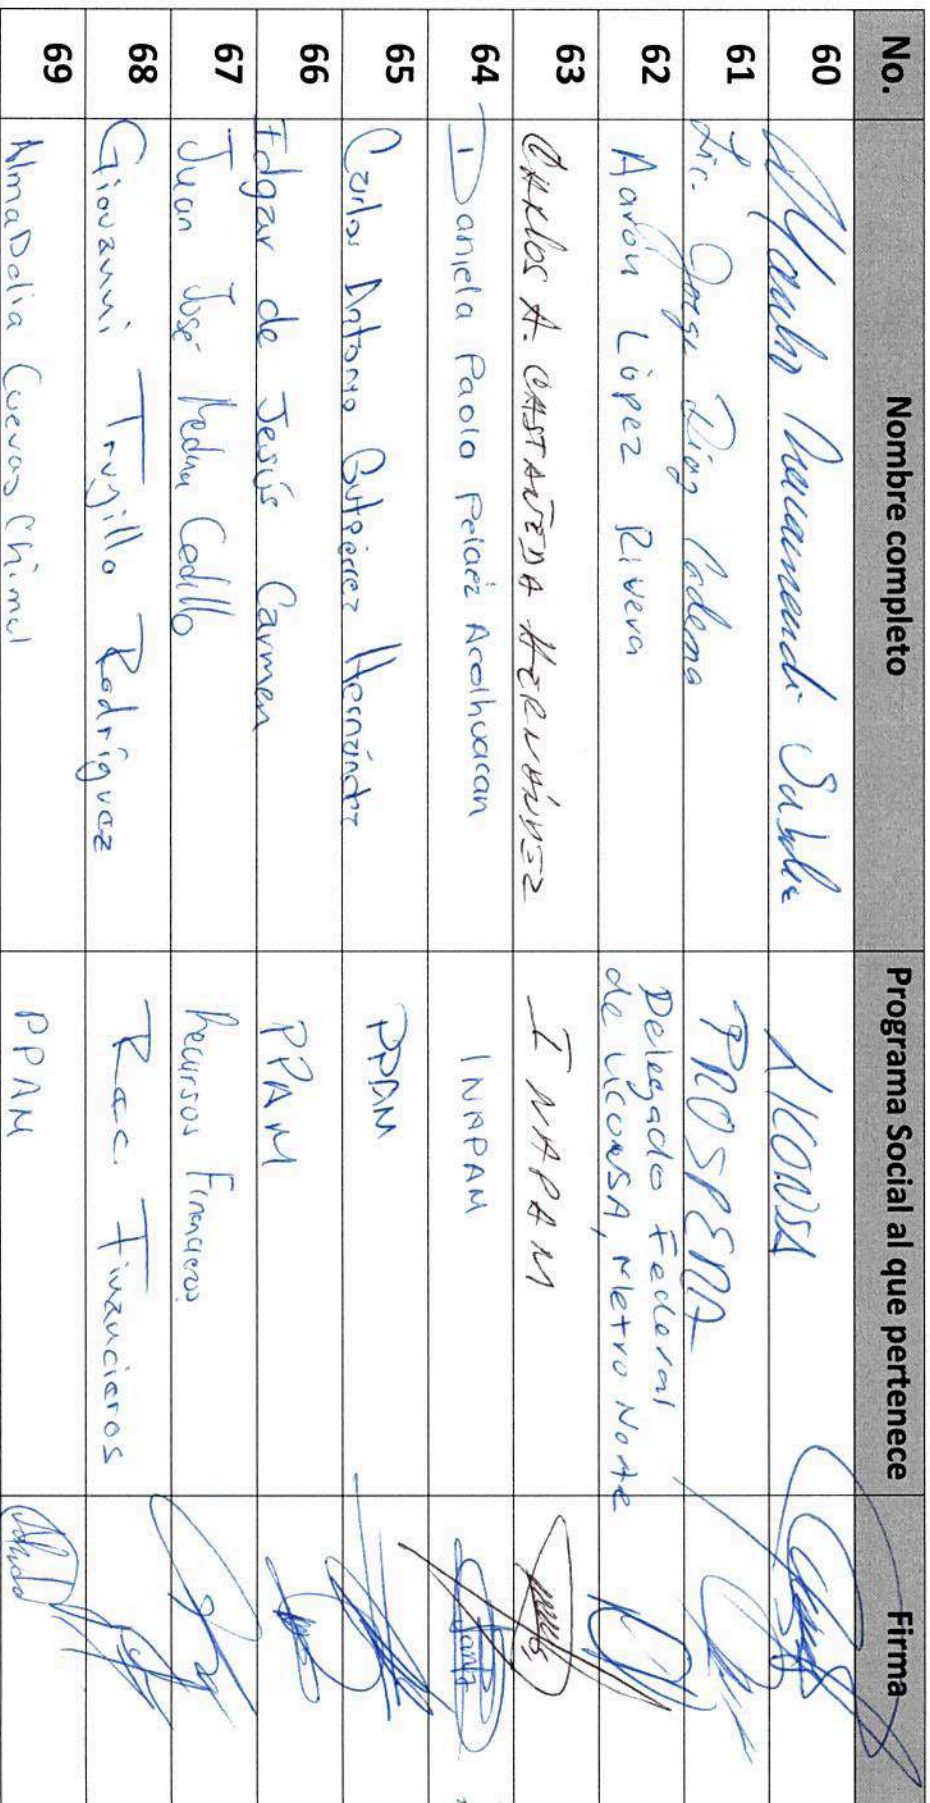 No. Nombre completo Programa Social al que pertenece Firma
60 LICONSA
61 Lic. Jorge Díaz Cadena PROSPERA
62 Aarón López Rivera Delegado Federal
de Liconsa, Metro Norte
63 CARLOS A. CASTAÑEDA HERNÁNDEZ INAPAM
64 Daniela Paola Pelaéz Acolhuacan INAPAM
65 Carlos Antonio Gutiérrez Hernández PPAM
66 Edgar de Jesús Carmen PPAM
67 Juan José Medina Cedillo Recursos Financieros
68 Giovanni Trujillo Rodríguez Rec. Financieros
69 Alma Delia Cuevas Chimal PPAM